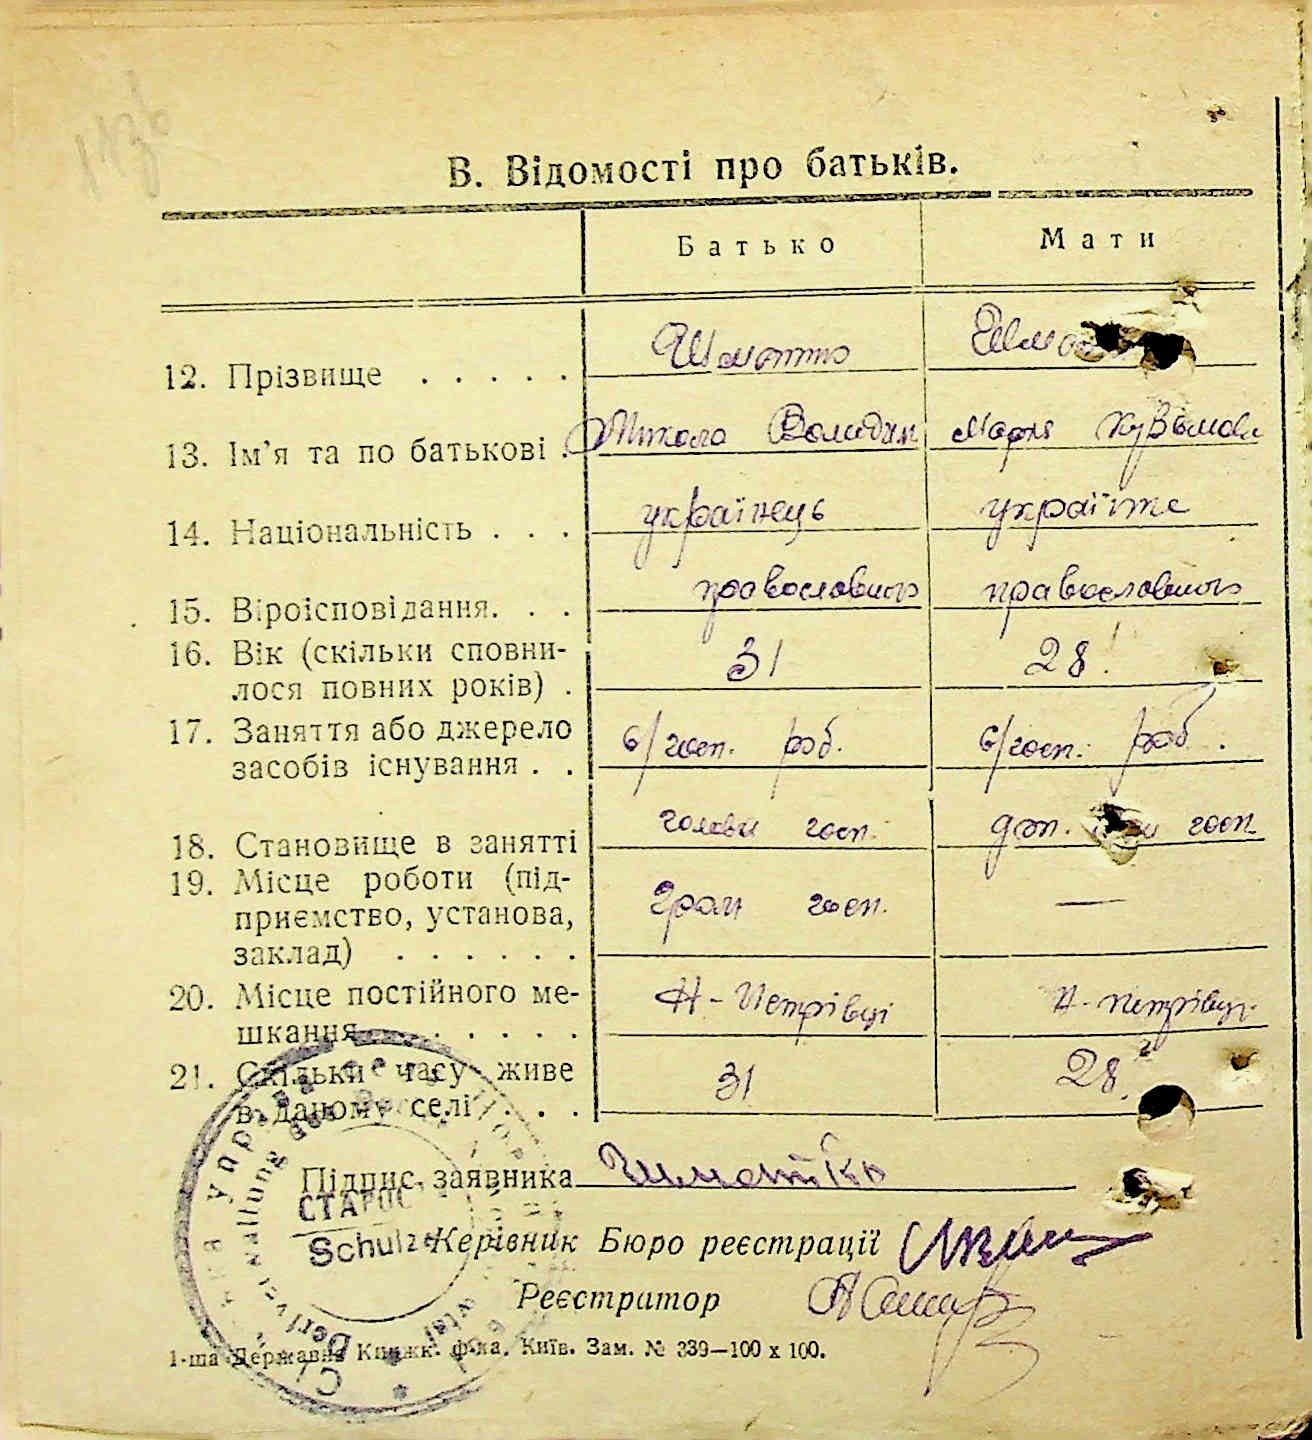 В. Відомості про батьків.
Батько Мати
12. Прізвище . . . . . Шматко
13. Ім'я та по батькові . Микола Володим Марія Кузьмова
14. Національність . . . українець українка
15. Віроісповідання. . . православного православного
16. Вік (скільки сповни-
лося повних років) . 31 28
17. Заняття або джерело
засобів існування . . с/госп. роб. с/госп. роб.
18. Становище в занятті голова госп. госп
19. Місце роботи (під-
приємство, установа,
заклад) . . . . . . Гром госп. —
20. Місце постійного ме-
шкання . . . . . . Н-Петрівці Н-Петрівці
21. Скільки часу живе
в даному селі . . . 31 28
Підпис заявника Шматко
СТАРОС
Schulze
Керівник Бюро реєстрації
Реєстратор
1-ша Державна Книжк. ф-ка. Київ. Зам. № 339—100 х 100.